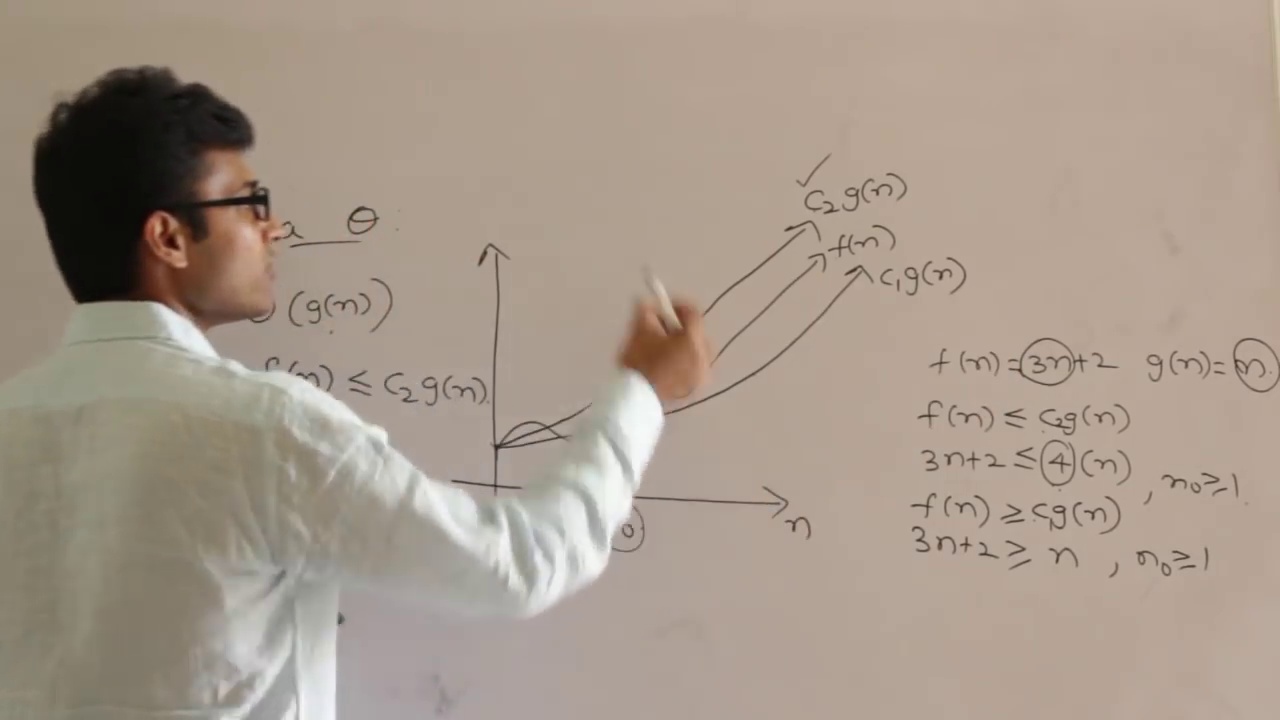 θ :
(g(n))
f(n) ≤ c₂g(n)
c₂g(n)
f(n)
c₁g(n)
n
f(n)=3n+2 g(n)=n
f(n) ≤ c₂g(n)
3n+2 ≤ 4(n) , n₀≥1
f(n) ≥ c₁g(n)
3n+2 ≥ n , n₀≥1